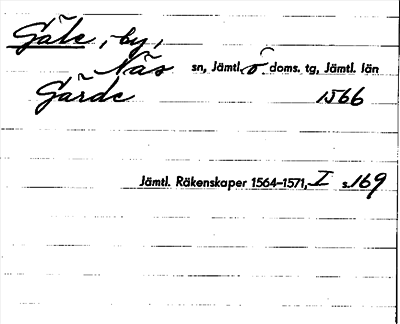 Gäle, by,
Näs sn, Jämtl. ö doms. tg, Jämtl. län
Gärde 1566
Jämtl. Räkenskaper 1564–1571, I s. 169